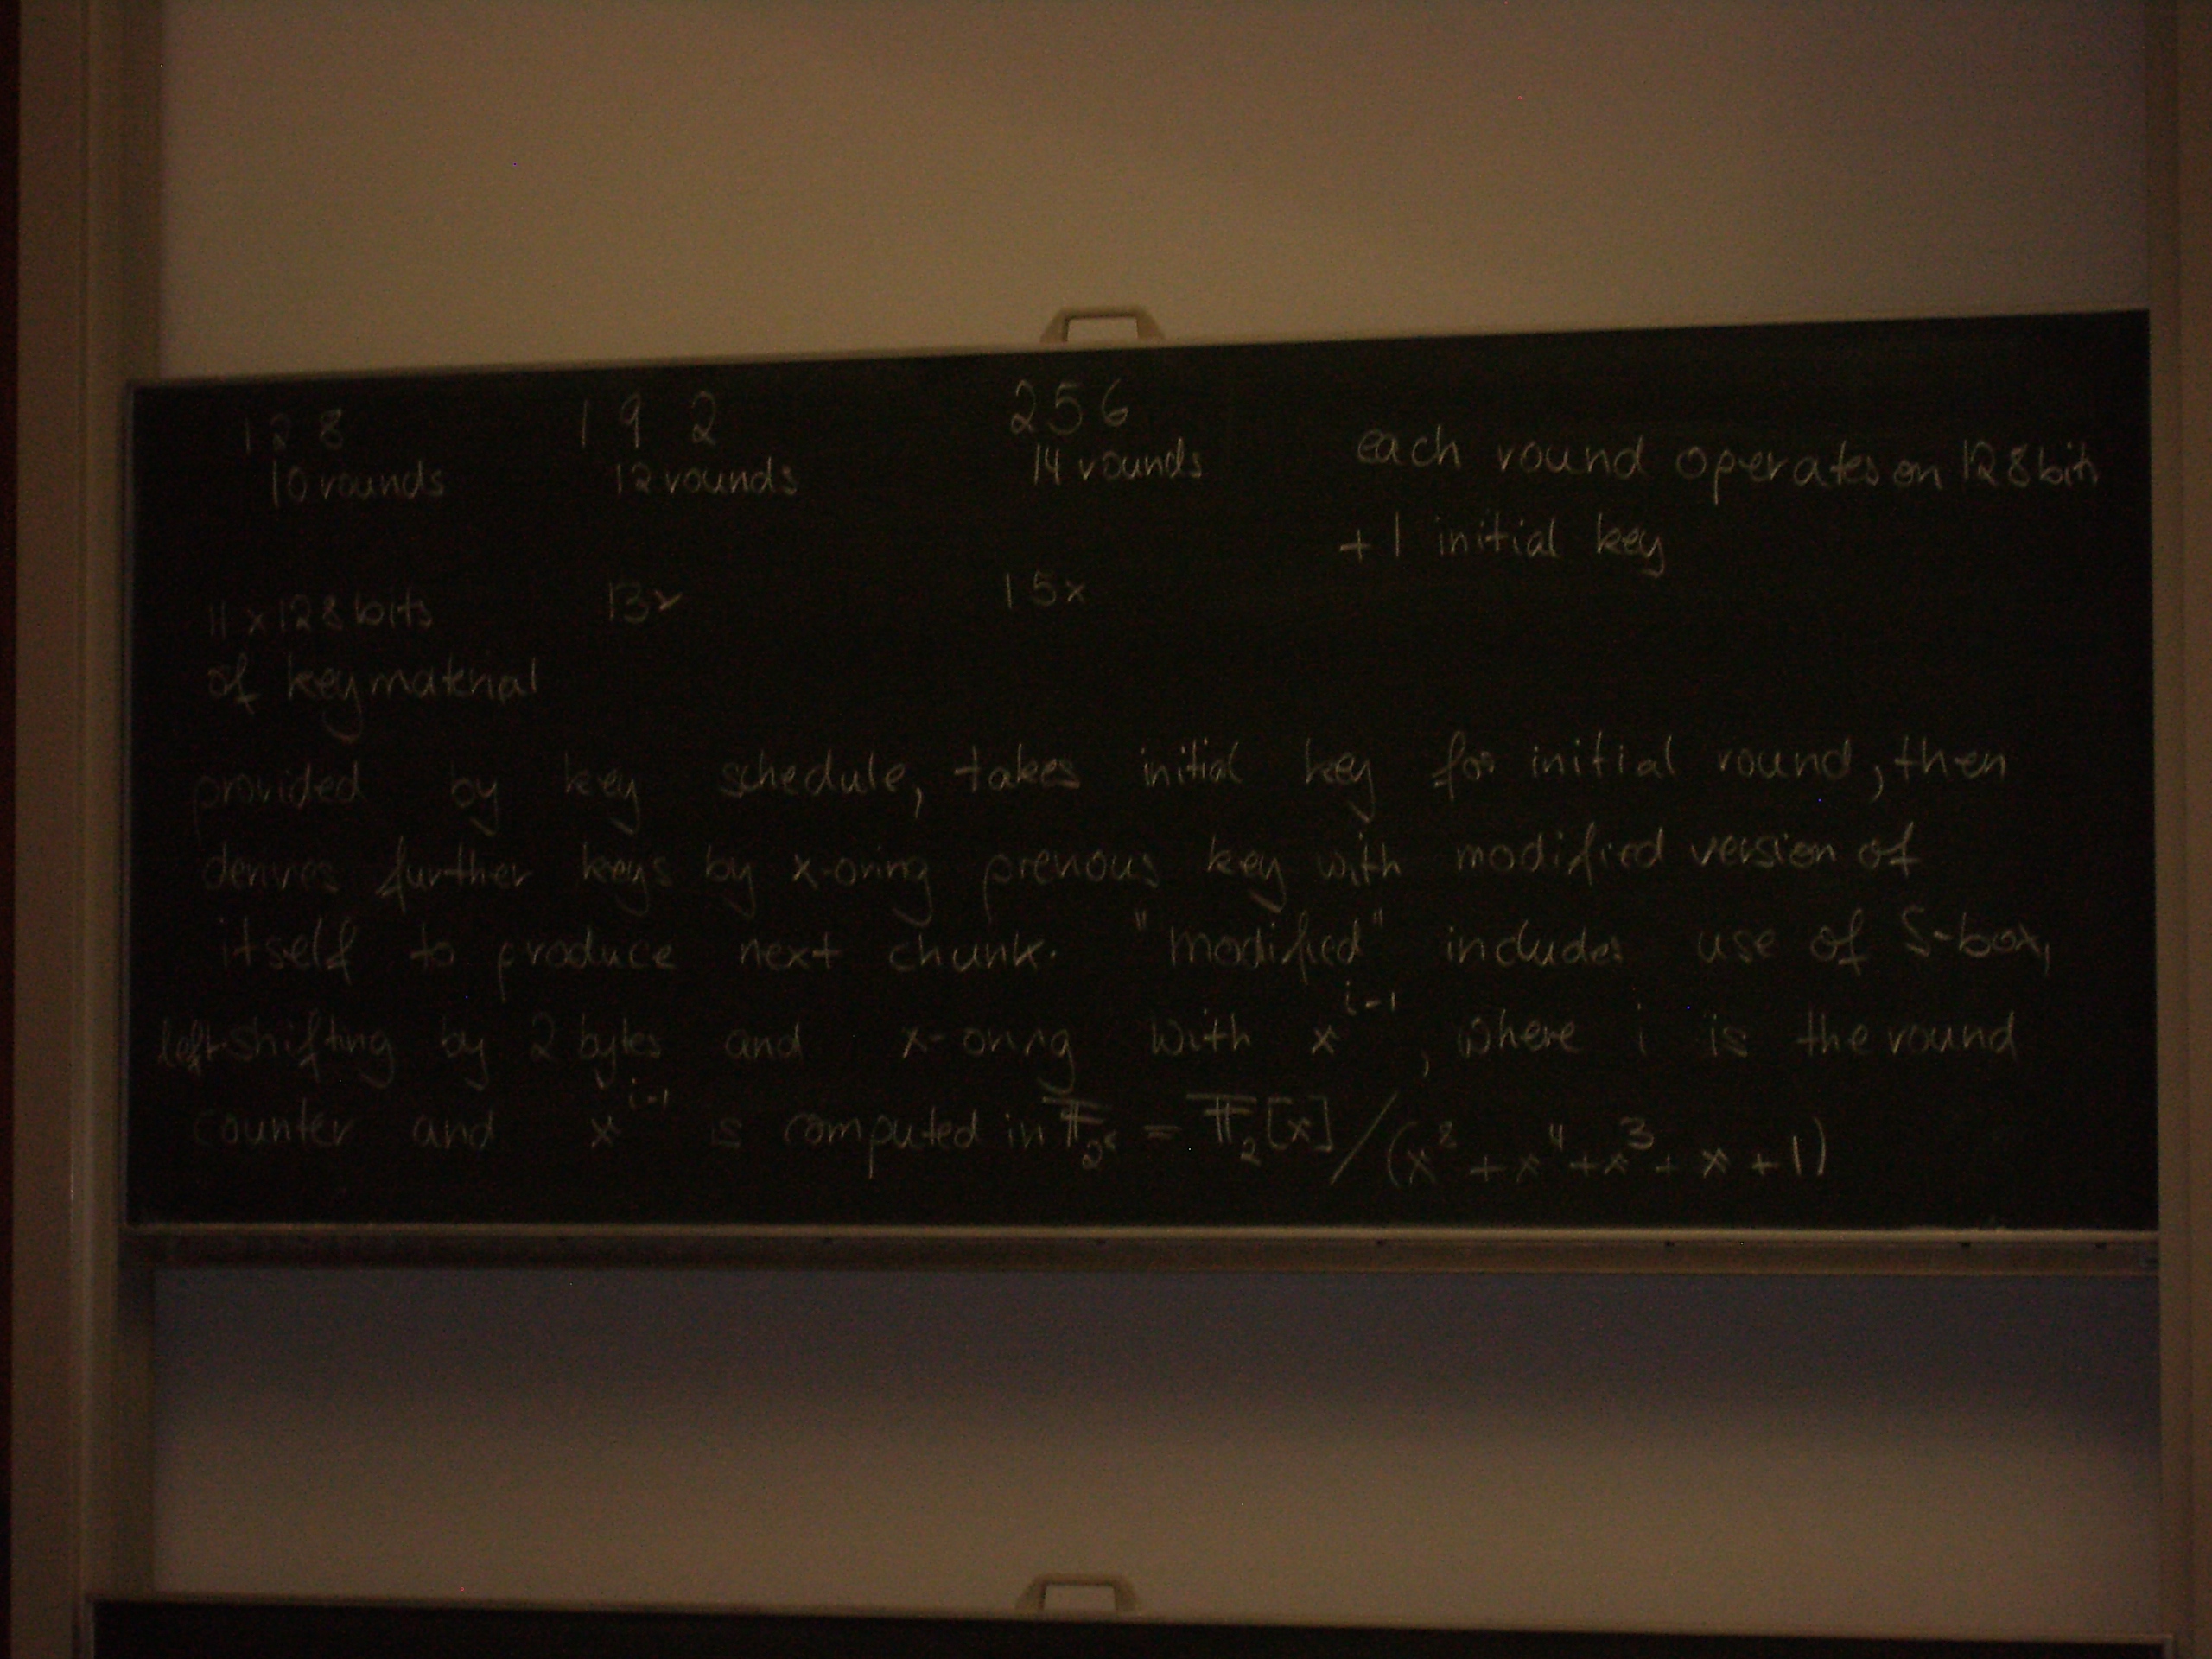 128 192 256
10 rounds 12 rounds 14 rounds each round operates on 128 bit
+ 1 initial key
11 x 128 bits 13x 15x
of key material
provided by key schedule, takes initial key for initial round, then
derives further keys by x-oring previous key with modified version of
itself to produce next chunk. "modified" includes use of S-box,
left-shifting by 2 bytes and x-oring with x^{i-1}, where i is the round
counter and x^{i-1} is computed in 𝔽_{2^8} = 𝔽_2[x]/(x^8 + x^4 + x^3 + x + 1)